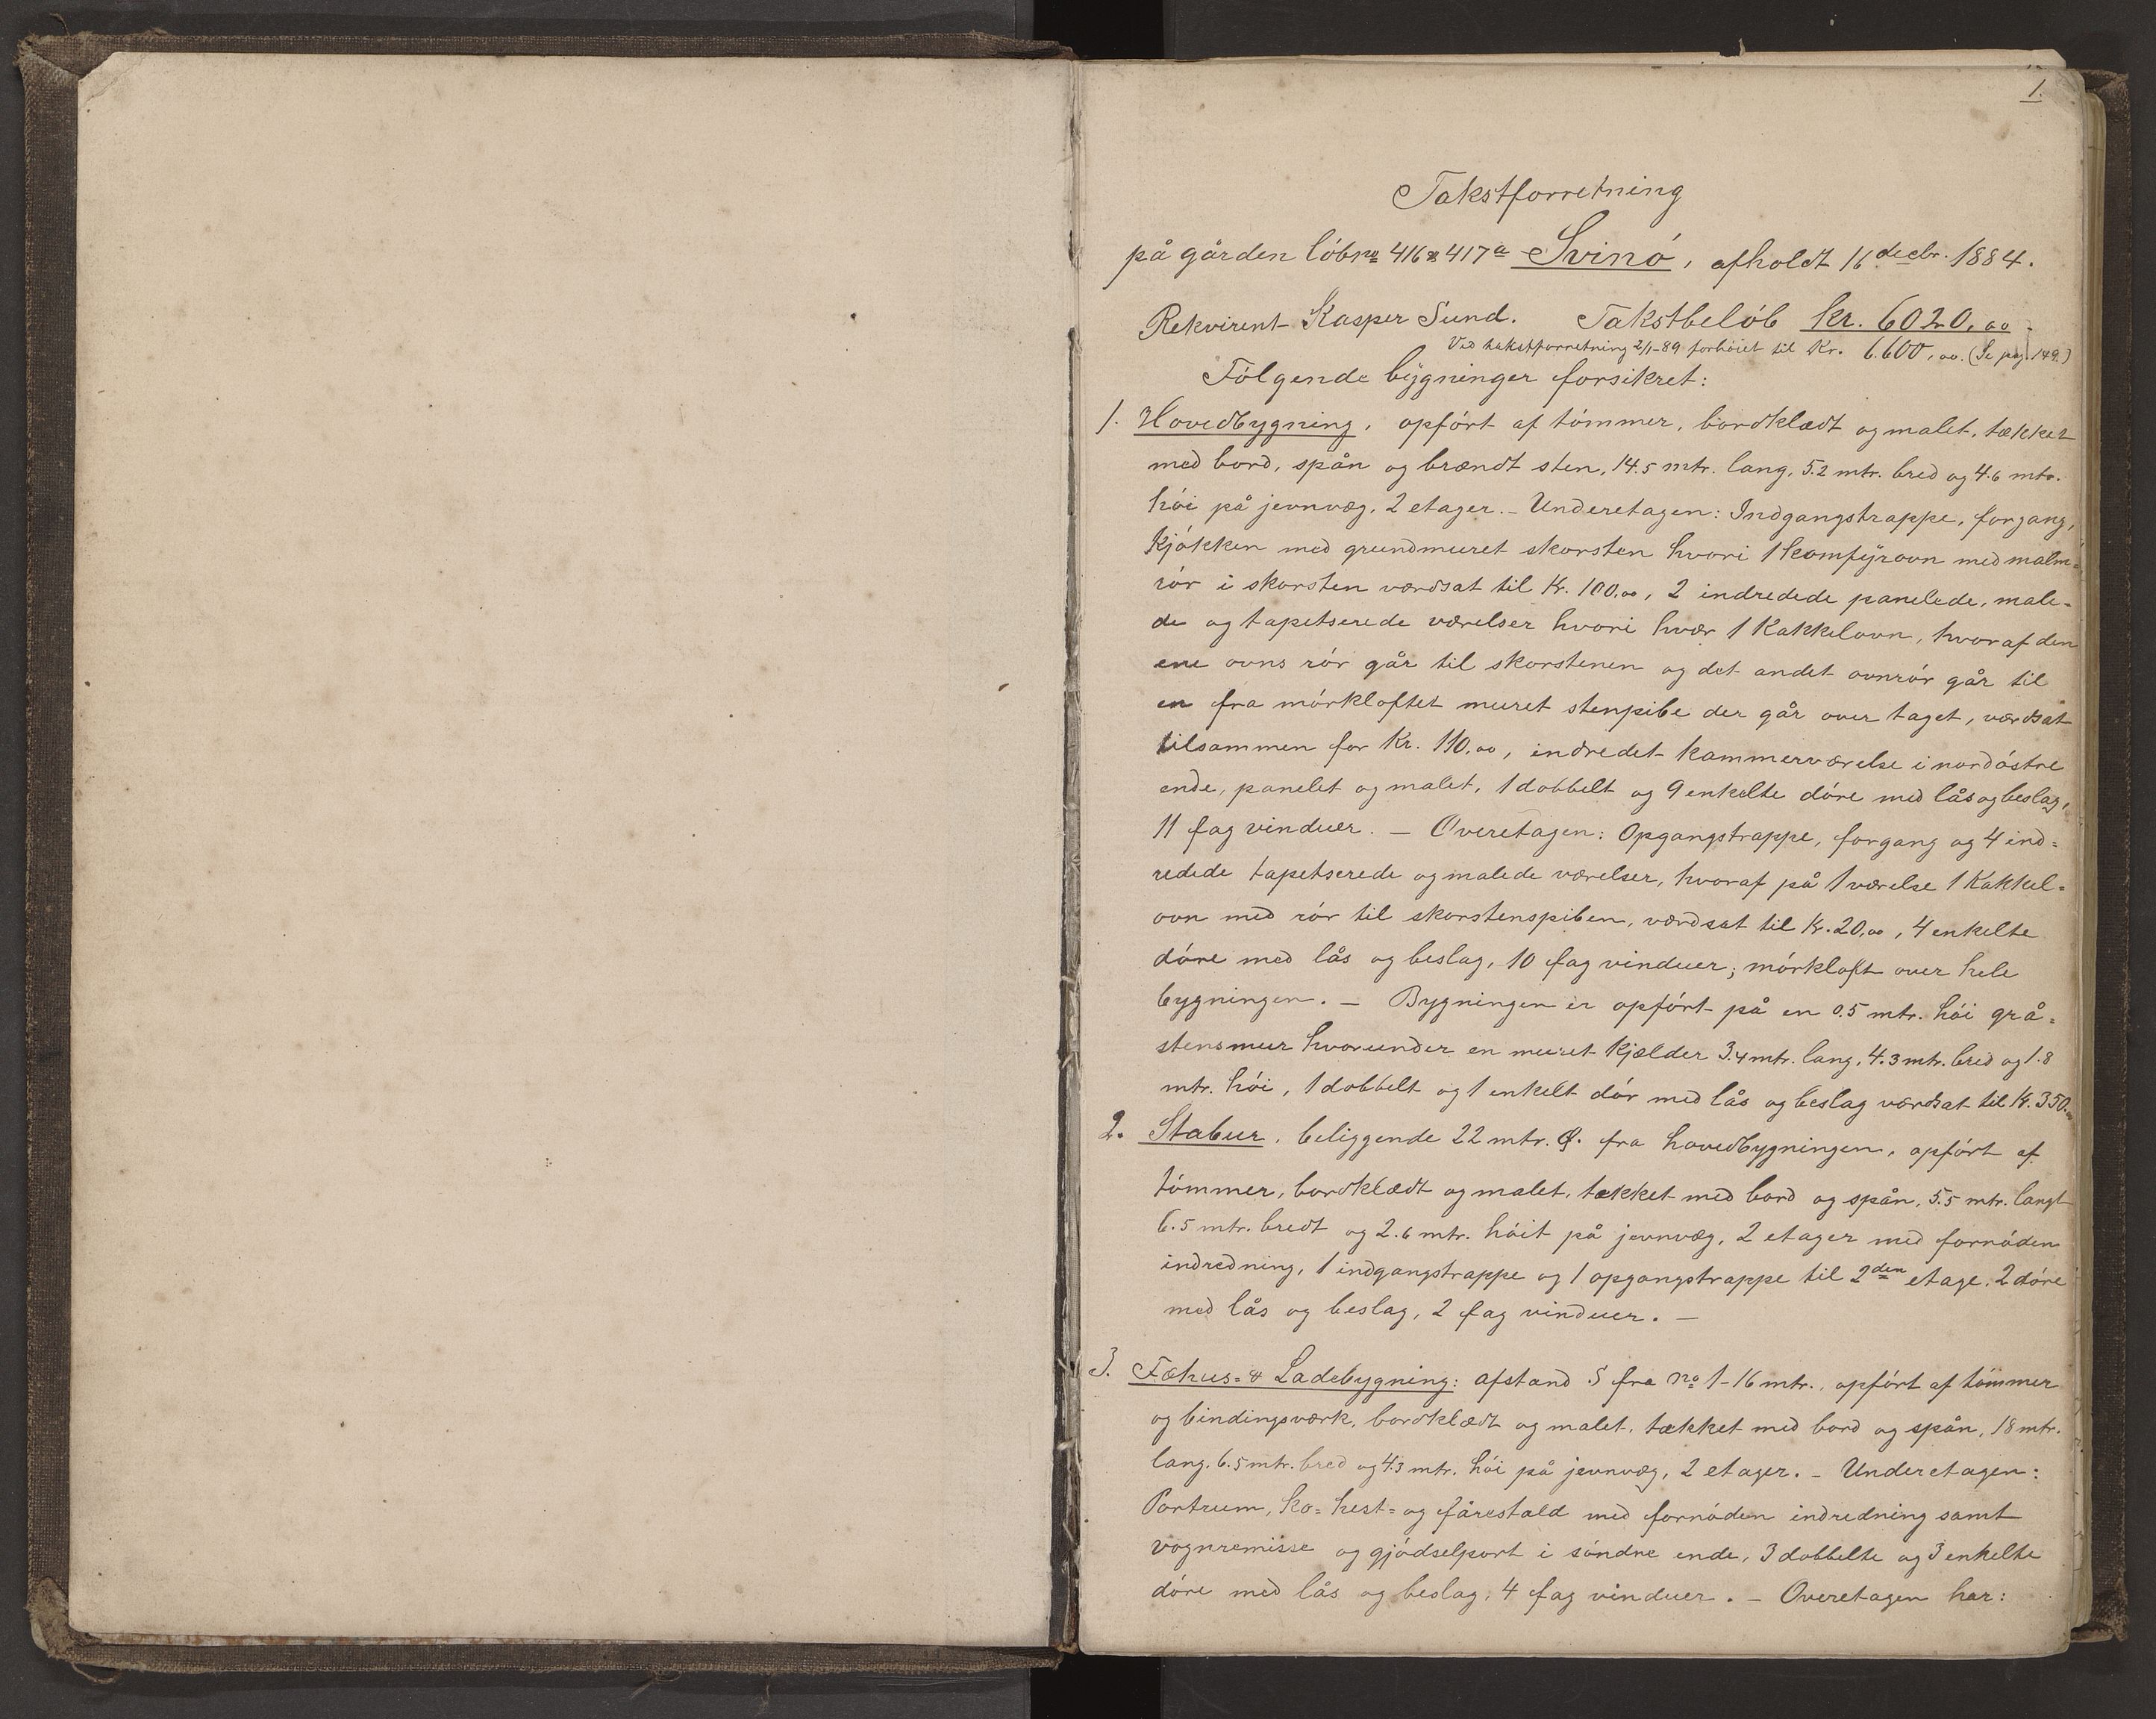 1.
Takstforretning
på gården löbno 416 & 417a Svinó, afholdt 16 decbr. 1884.
Rekvirent Kasper Sund. Takstbelób kr. 6020,00 -
Ved takstforretning 2/1-89 forhóiet til Kr. 6.600,00. (Se pag. 149.)
Fólgende bygninger forsikret:
1. Hovedbygning, opfórt af tómmer, bordklædt og malet, tækket
med bord, spån og brændt sten, 14.5 mtr. lang, 5.2 mtr. bred og 4.6 mtr.
hói på jevnvæg, 2 etager. - Underetagen: Indgangstrappe, forgang,
Kjókken med grundmuret skorsten hvori 1 komfyrovn med malm=
rór i skorsten værdsat til Kr. 100,00, 2 indredede panelede, male-
de og tapetserede værelser hvori hvær 1 Kakkelovn, hvoraf den
ene ovns rór går til skorstenen og det andet ovnrór går til
en fra mórkloftet muret stenpibe der går over taget, værdsat
tilsammen for Kr. 110,00, indredet kammerværelse i nordóstre
ende, panelet og malet, 1 dobbelt og 9 enkelte dóre med lås og beslag,
11 fag vinduer. - Overetagen: Opgangstrappe, forgang og 4 ind=
redede tapetserede og malede værelser, hvoraf på 1 værelse 1 Kakkel=
ovn med rór til skorstenspiben, værdsat til Kr. 20,00, 4 enkelte
dóre med lås og beslag, 10 fag vinduer; mórkloft over hele
bygningen. - Bygningen er opfórt på en 0.5 mtr. hói grå=
stensmur hvorunder en muret Kjælder 3.4 mtr. lang, 4.3 mtr. bred og 1.8
mtr. hói, 1 dobbelt og 1 enkelt dór med lås og beslag værdsat til Kr. 350.00
2. Stabur, beliggende 22 mtr. Ø. fra hovedbygningen, opfórt af
tómmer, bordklædt og malet, tækket med bord og spån, 5.5 mtr. langt
6.5 mtr. bredt og 2.6 mtr. hóit på jevnvæg, 2 etager med fornóden
indredning, 1 indgangstrappe og 1 opgangstrappe til 2den etage, 2 dóre
med lås og beslag, 2 fag vinduer. -
3. Fæhus= & Ladebygning: afstand S fra No 1 - 16 mtr., opfórt af tómmer
og bindingsværk, bordklædt og malet, tækket med bord og spån, 18 mtr.
lang, 6.5 mtr. bred og 4.3 mtr. hói på jevnvæg, 2 etager. - Underetagen:
Portrum, ko= hest= og fårestald med fornóden indredning samt
vognremisse og gjódselport i sóndre ende, 3 dobbelte og 3 enkelte
dóre med lås og beslag, 4 fag vinduer. - Overetagen har: